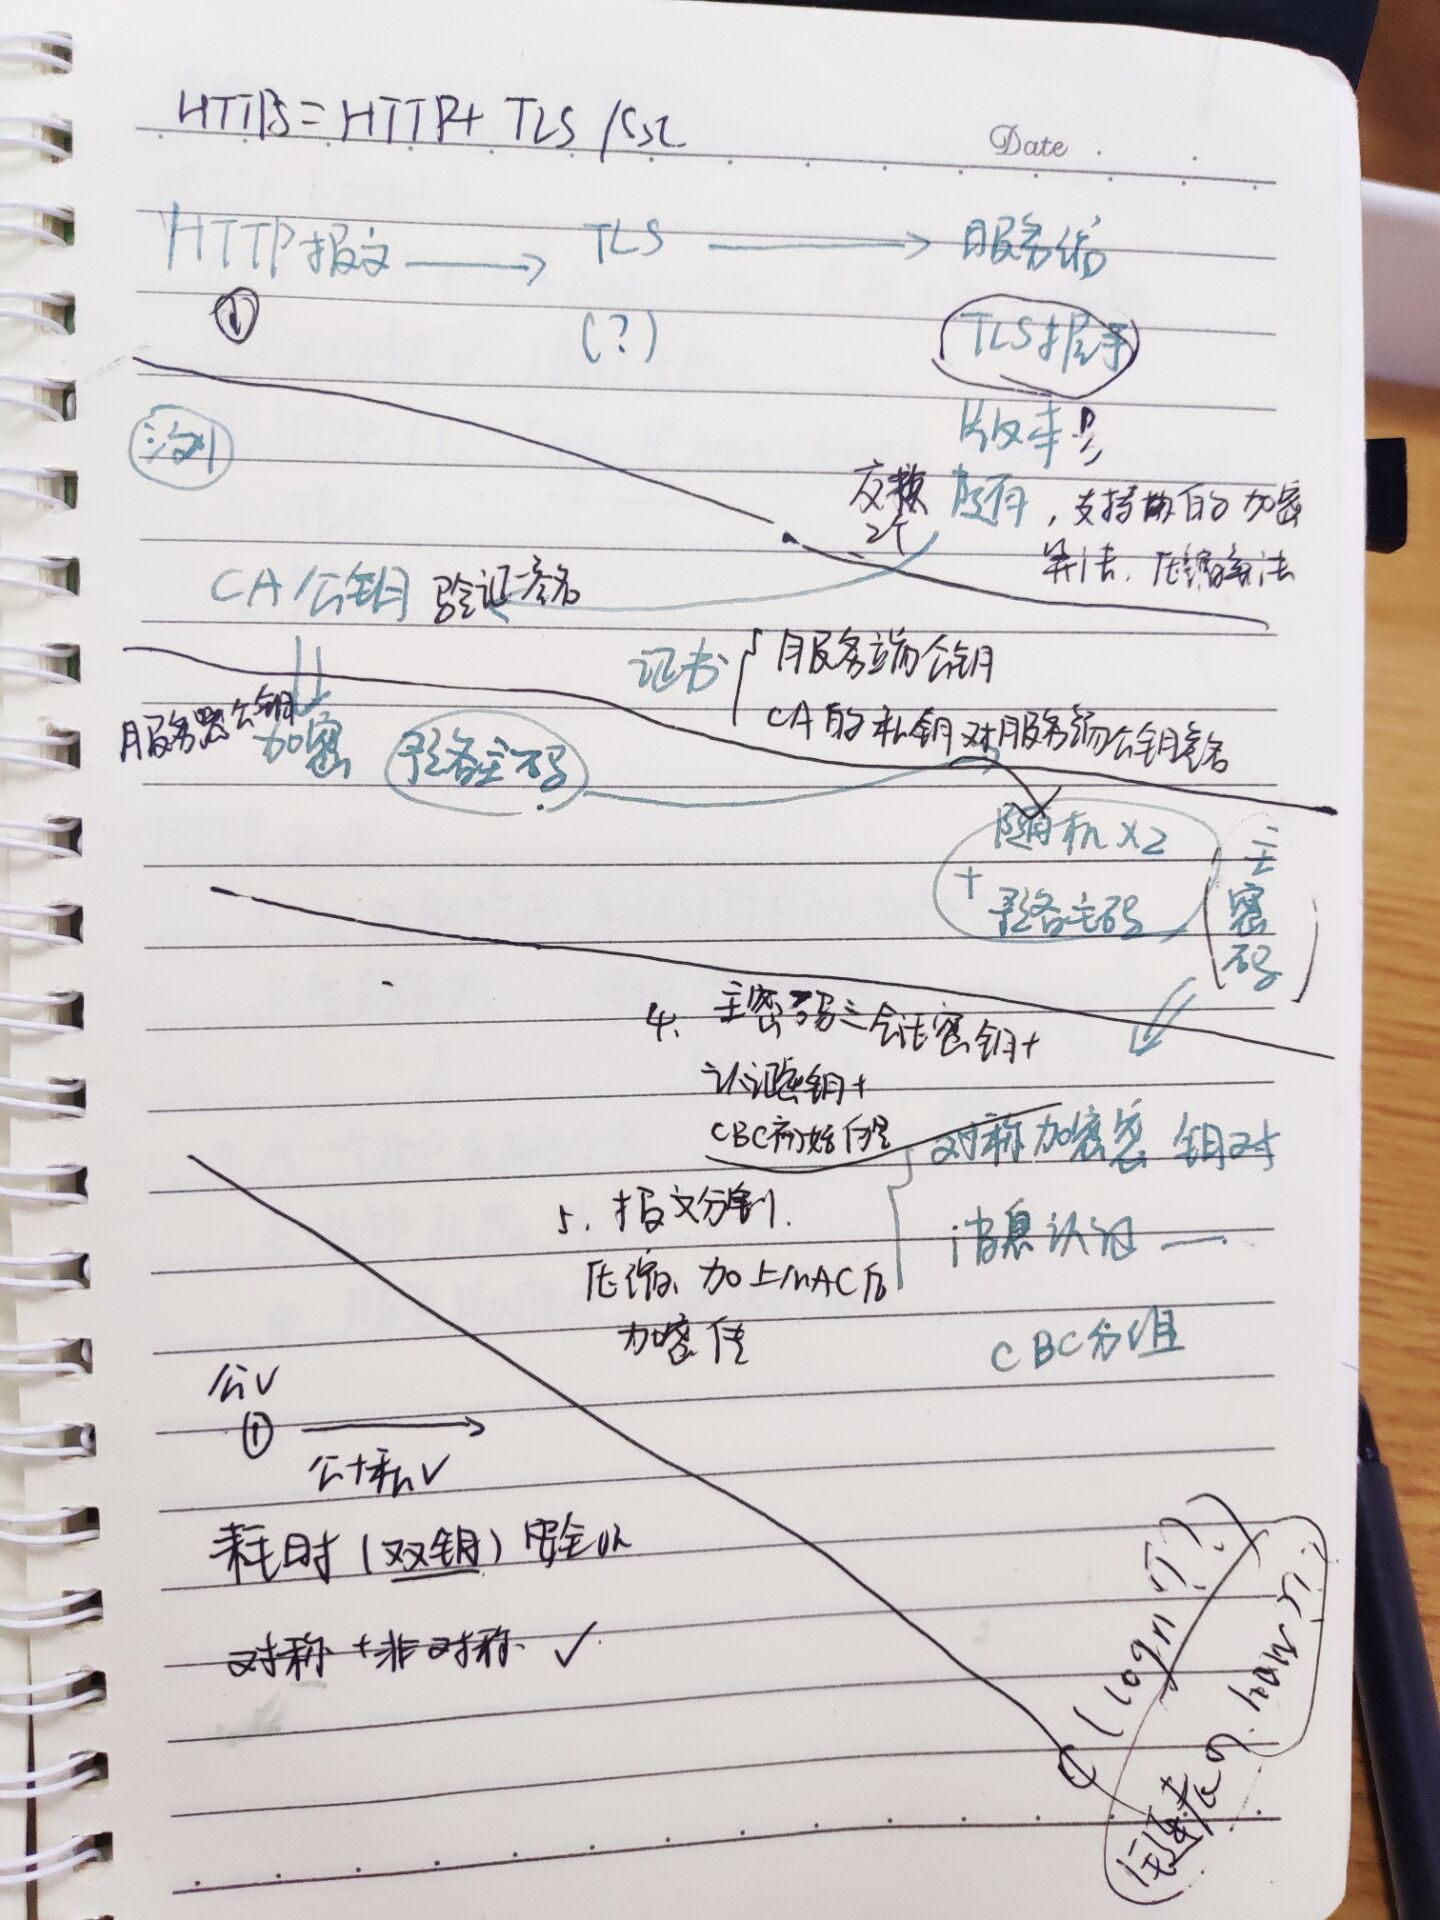 HTTPS = HTTP + TLS / SSL
Date
HTTP报文 → TLS → 服务端
①
(?)
TLS握手
版本号
2个
随机, 支持的加密
算法, 压缩算法
CA公钥 验证签名
证书
服务端公钥
CA的私钥对服务端公钥签名
服务器公钥
加密
预备主码
随机x2
+
预备主码
主密码
4. 主密码=会话密钥+
认证密钥+
CBC初始向量
对称加密密钥对
5. 报文分割.
压缩, 加上MAC后
加密传
消息认证 —
CBC分组
公✓
① →
公+私✓
耗时 (双钥) 安全
对称+非对称 ✓
(logn)?